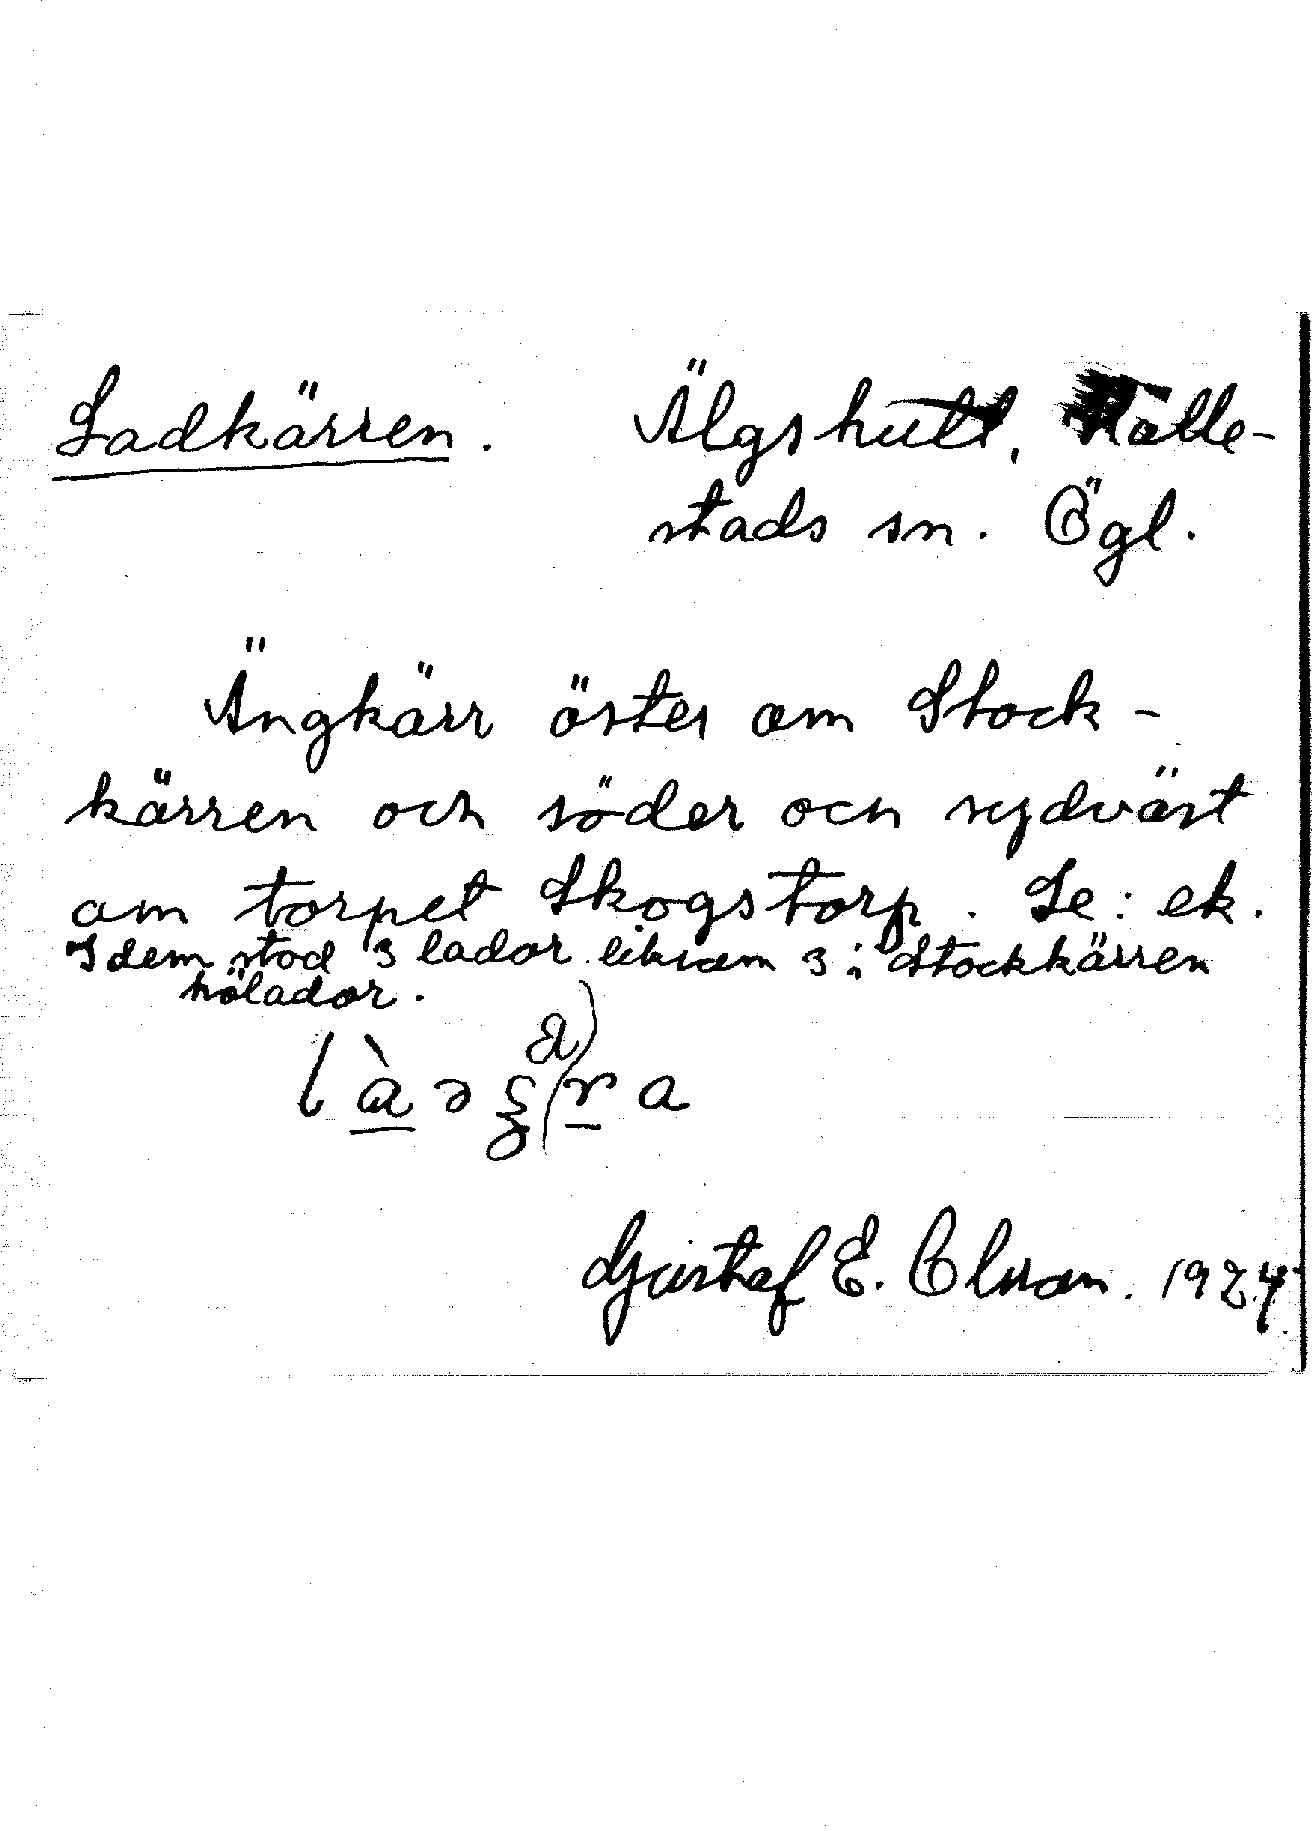 Ladkärren. Älgshult, Hälle-
stads sn. Ögl.
Ängkärr öster om Stock-
kärren och söder och sydväst
om torpet Skogstorp. Se: ek.
I dem stod 3 lador liksom 3 i Stockkärren
hölador.
Gustaf E. Olson. 1924